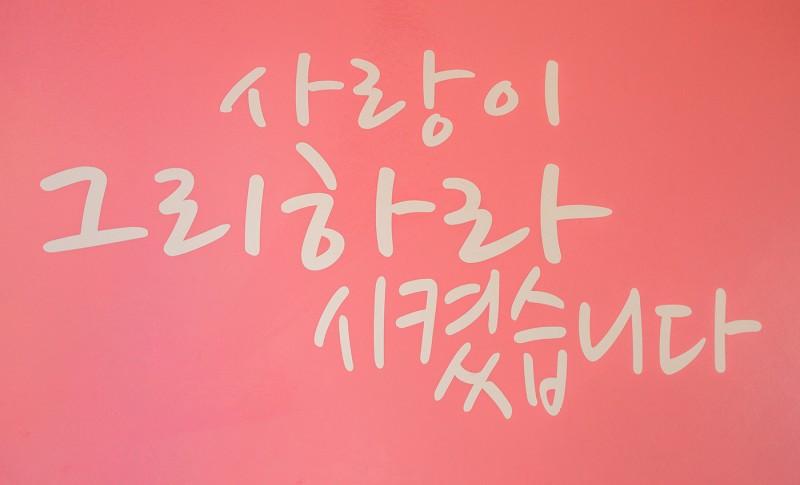 사랑이
그리하라
시켰습니다